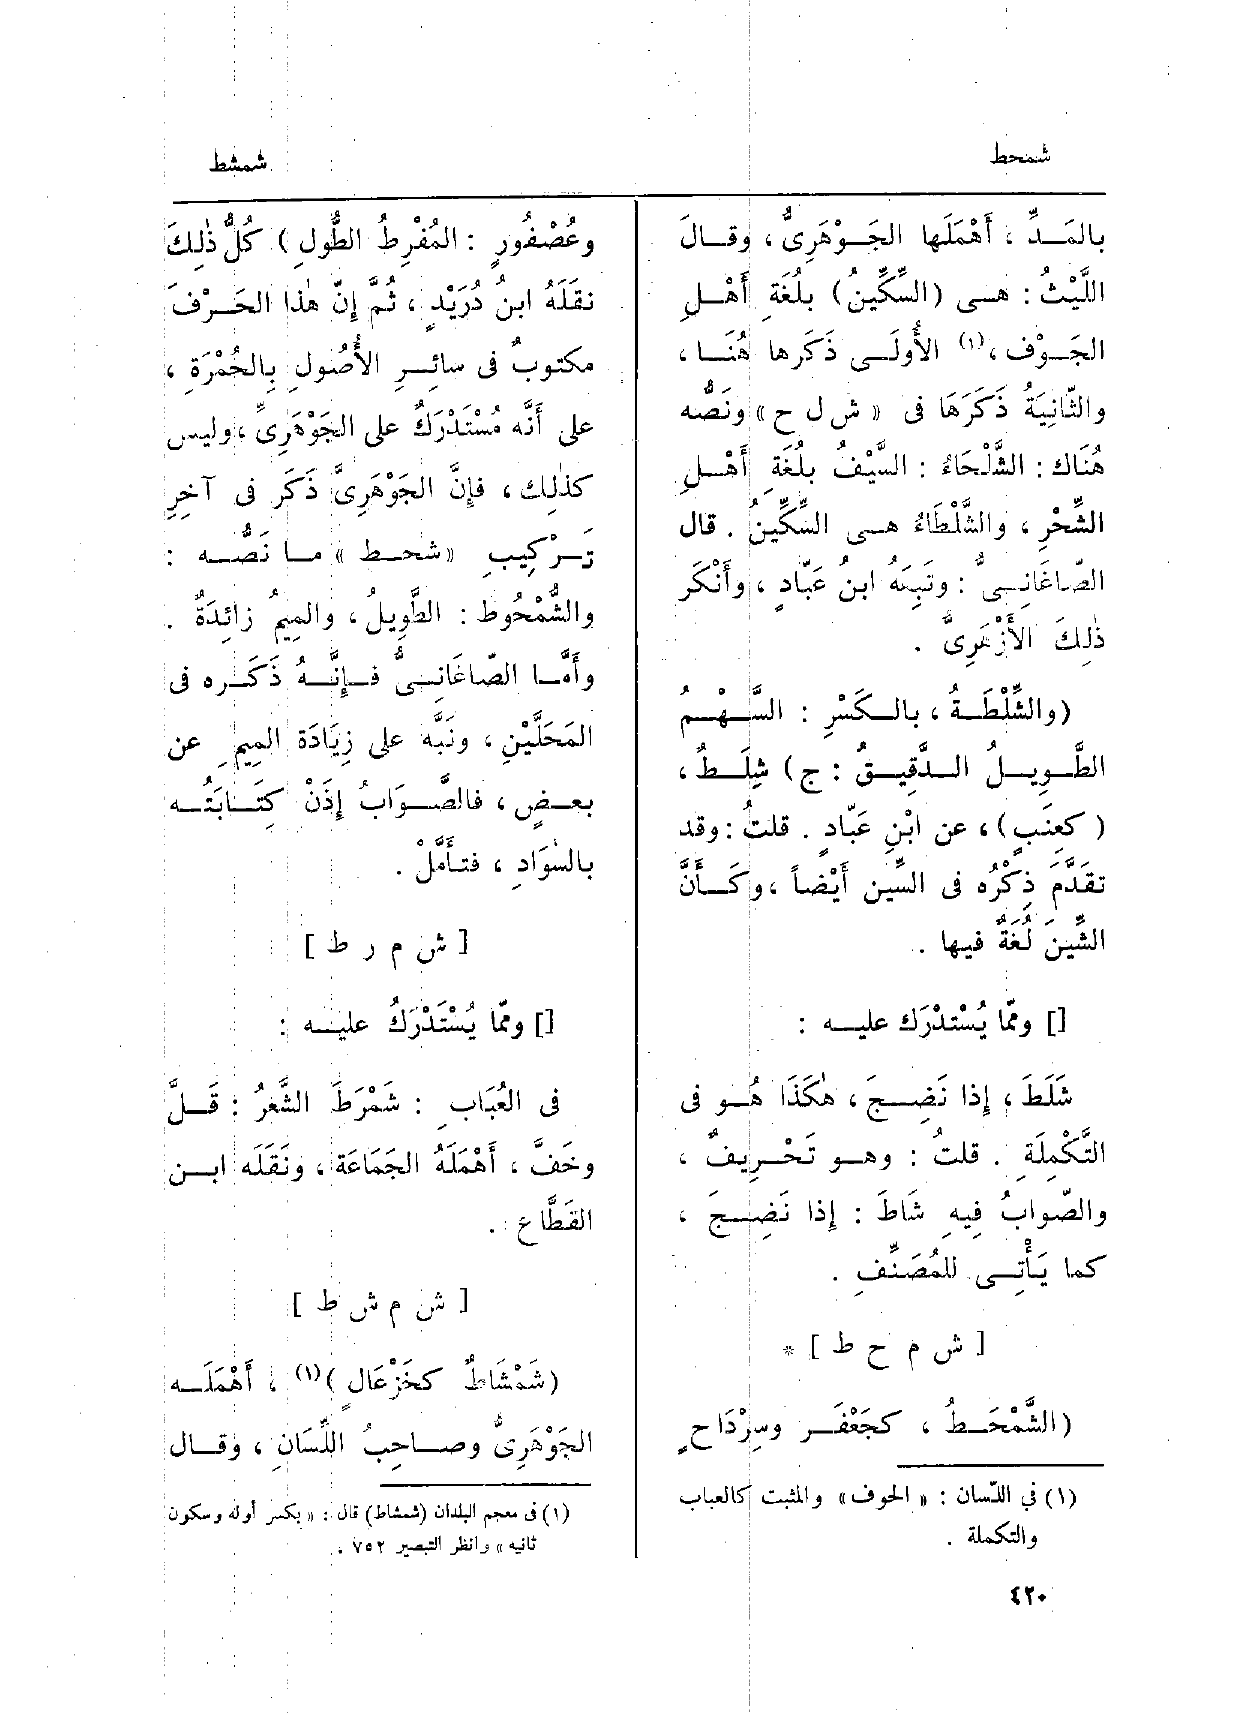 شمحط
شمشط
بالمَـــدِّ ، أَهْمَلَها الجَــوْهَرِىُّ ، وقــالَ
اللَّيْثُ : هــى (السِّكِّينُ) بلُغَةِ أَهْــلِ
الجَــوْف ،(١) الأُولَــى ذَكَرها هُنَــا ،
والثّانِيَةُ ذَكَرَهَا فى « ش ل ح » ونَصُّه
هُنَاك : الشَّلْحَاءُ : السَّيْفُ بلُغَةِ أَهْــلِ
الشِّحْرِ ، والشَّلْطَاءُ هــى السِّكِّينُ . قال
الصّاغَانِــىُّ : وتَبِعَهُ ابنُ عَبّادٍ ، وأَنْكَر
ذٰلِكَ الأَزْهَرِىُّ .
(والشِّلْطَــةُ ، بالــكَسْرِ : السَّــهْــمُ
الطَّــوِيــلُ الــدَّقِيــقُ : ج) شِلَــطٌ ،
( كعِنَبٍ) ، عن ابْنِ عَبّادٍ . قلتُ : وقد
تقَدَّمَ ذِكْرُه فى السِّين أَيْضاً ، وكَــأَنَّ
الشِّينَ لُغَةٌ فيها .
[] وممّا يُسْتدْرَكُ عليــه :
شَلَطَ ، إذا نَضِــجَ ، هٰكَذَا هُــو فى
التَّكْمِلَةِ . قلتُ : وهــو تَحْــرِيفٌ ،
والصّوابُ فيهِ شَاطَ : إذا نَضِــجَ ،
كما يَأْتِــى للمُصَنِّفِ .
[ ش م ح ط ] *
(الشَّمْحَــطُ ، كجَعْفَــرٍ وسِرْدَاحٍ
(١) في اللسان : « الحوف » والمثبت كالعباب
والتكملة .
وعُصْفُورٍ : المُفْرِطُ الطُّولِ ) كُلُّ ذٰلِكَ
نقَلَهُ ابنُ دُرَيْدٍ ، ثُمَّ إنّ هٰذا الحَــرْفَ
مكتوبٌ فى سائِــرِ الأُصُولِ بِالحُمْرَةِ ،
على أَنَّه مُسْتَدْرَكٌ على الجَوْهَرِىِّ ، وليس
كذٰلِك ، فإنَّ الجَوْهَرِىَّ ذَكَر فى آخِرِ
تَــرْكِيبِ «شحــط » مــا نَصُّــه :
والشُّمْحُوط : الطَّوِيلُ ، والمِيمُ زائِدَةٌ .
وأَمَّــا الصّاغَانِــىُّ فــإِنَّــهُ ذَكَــره فى
المَحَلَّيْنِ ، ونَبَّه على زِيَادَة المِيمِ عن
بعــضٍ ، فالصَّــوَابُ إذَنْ كِتَــابَتُــه
بالسَّوَادِ ، فتَأَمَّلْ .
[ ش م ر ط ]
[] وممّا يُسْتَدْرَكُ عليــه :
فى العُبَابِ : شَمْرَطَ الشَّعرُ : قَــلَّ
وخَفَّ ، أَهْمَلَهُ الجَمَاعَة ، ونَقَلَه ابــن
القَطَّاعِ .
[ ش م ش ط ]
(شَمْشَاطٌ كخَزْعَالٍ )(١) ، أَهْمَلَــه
الجَوْهَرِىُّ وصــاحِبُ اللِّسَان ، وَقــال
(١) فى معجم البلدان (شمشاط) قال : « بكسر أوله وسكون
ثانيه » وانظر التبصير ٧٥٢ .
٤٢٠